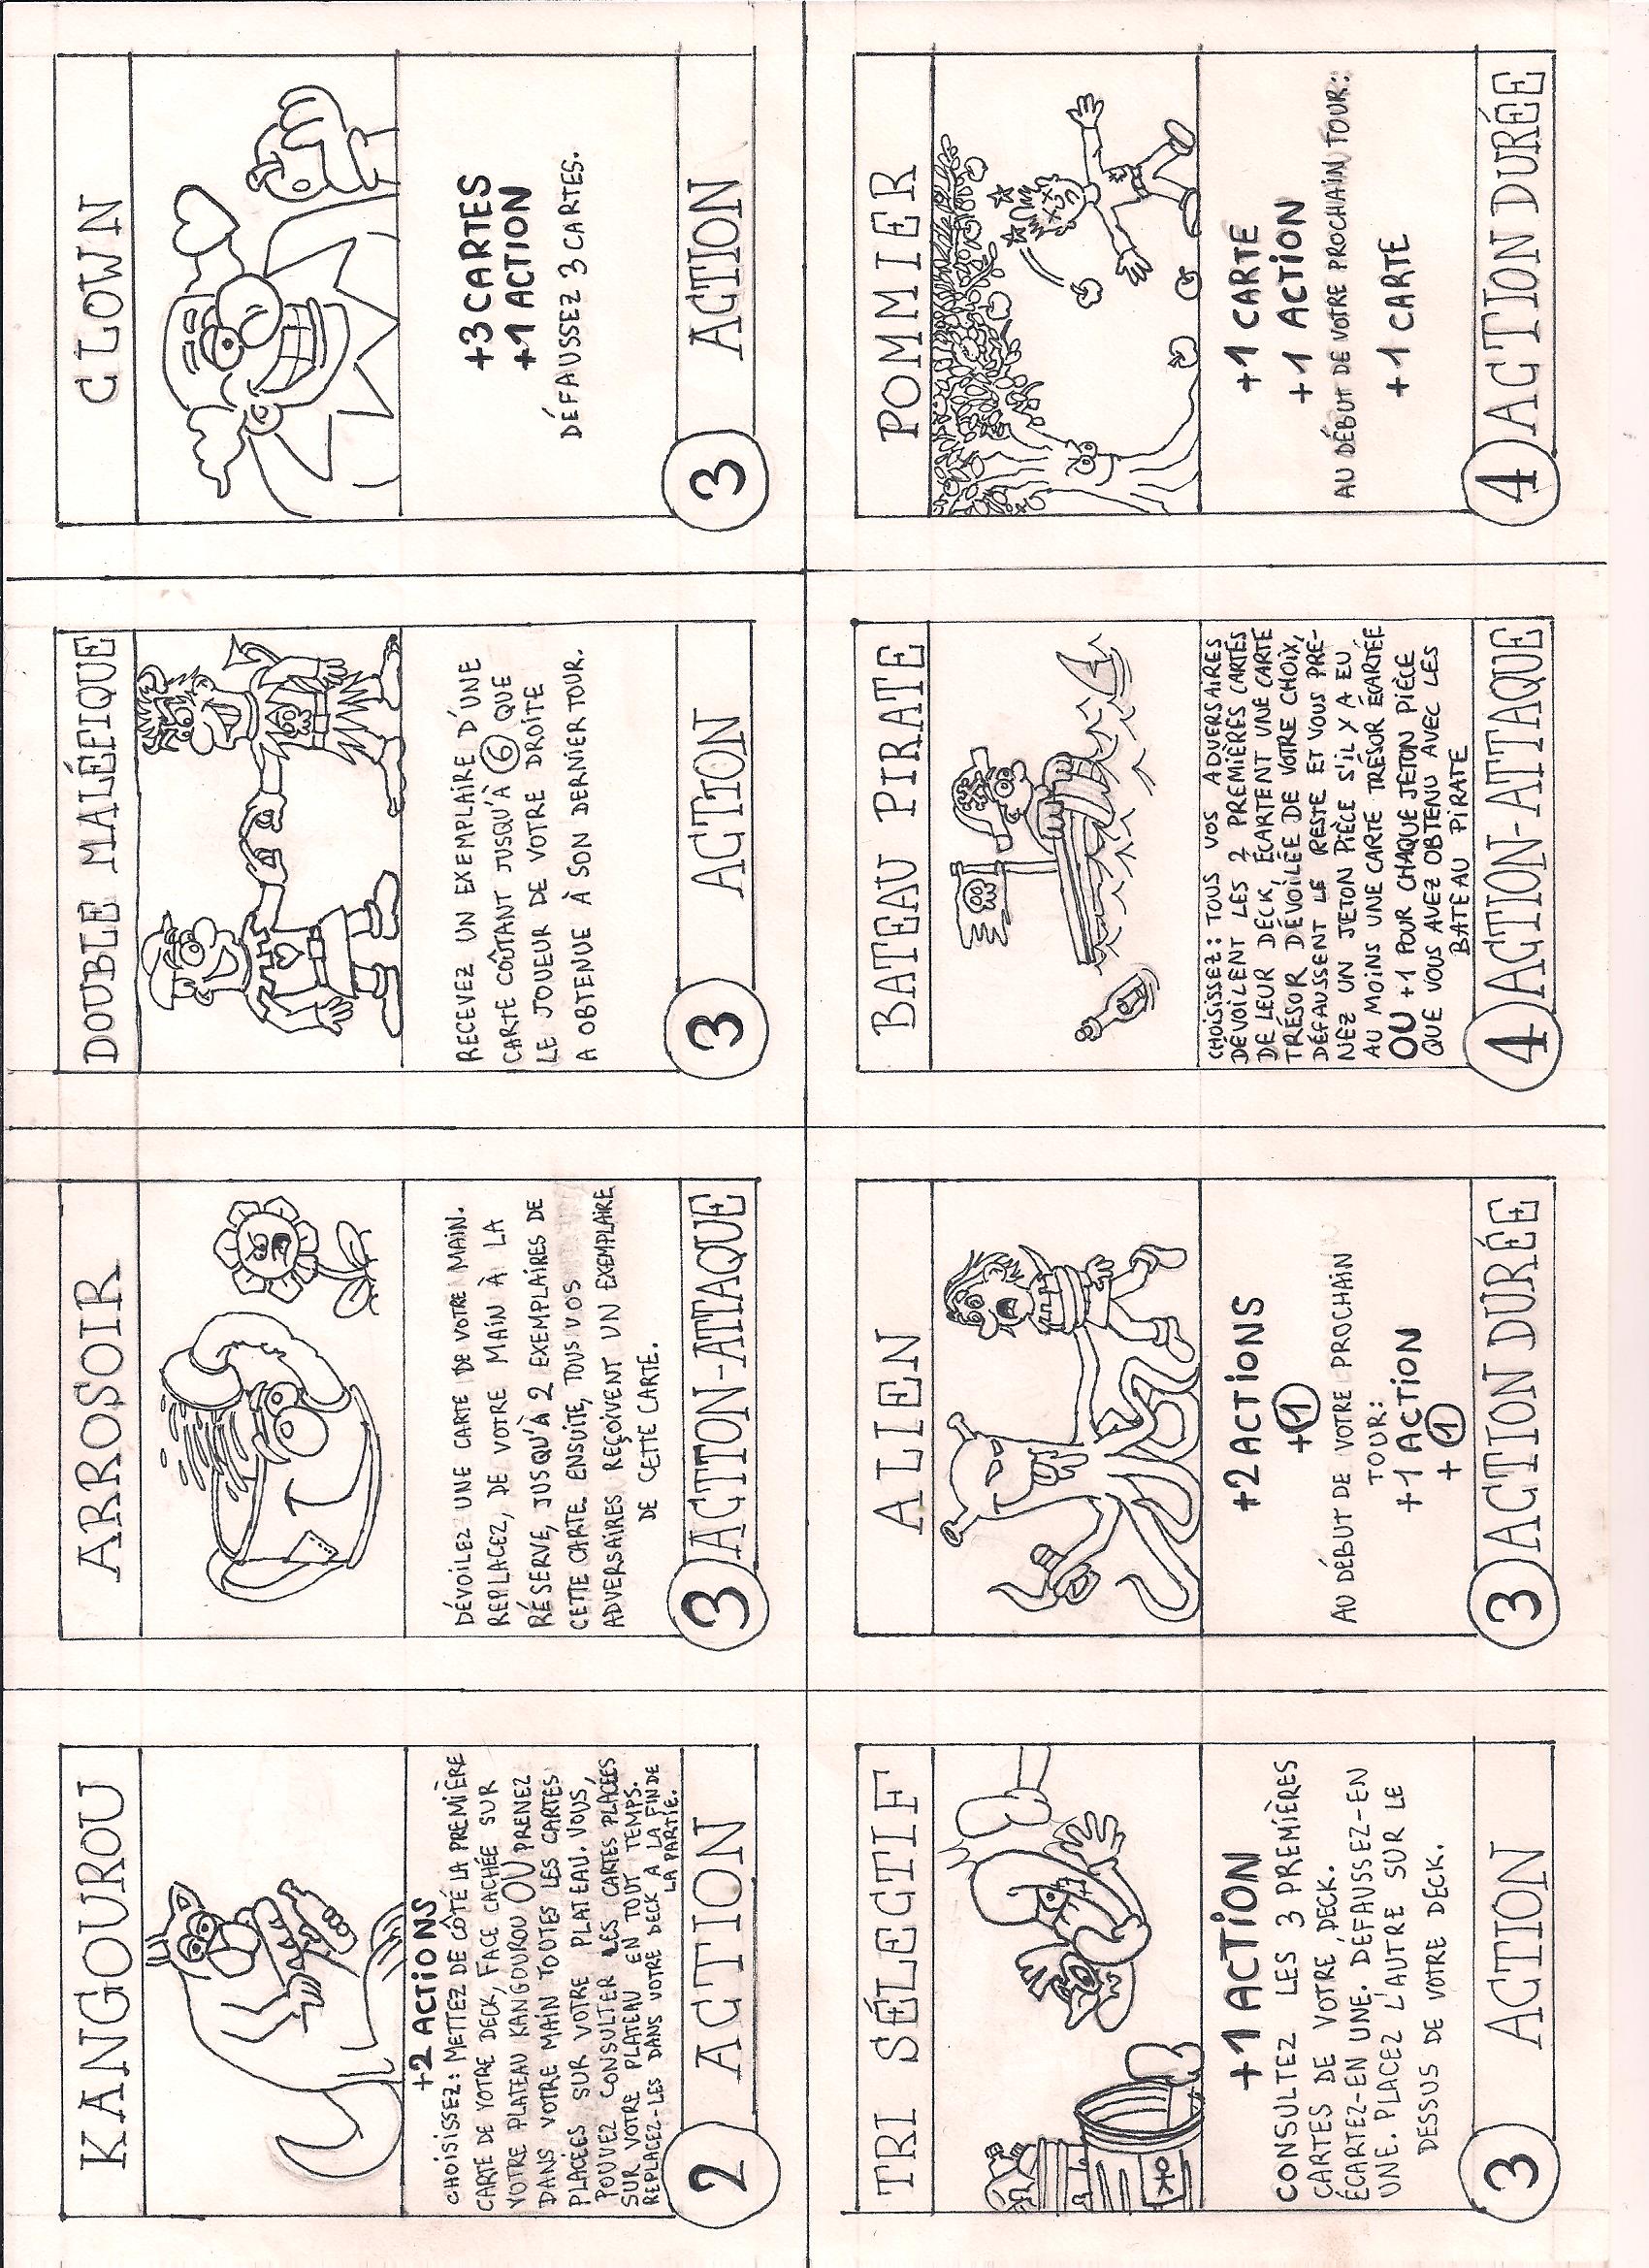 KANGOUROU
+2 ACTIONS
CHOISISSEZ: METTEZ DE CÔTÉ LA PREMIÈRE
CARTE DE VOTRE DECK, FACE CACHÉE SUR
VOTRE PLATEAU KANGOUROU OU PRENEZ
DANS VOTRE MAIN TOUTES LES CARTES
PLACÉES SUR VOTRE PLATEAU. VOUS
POUVEZ CONSULTER LES CARTES PLACÉES
SUR VOTRE PLATEAU EN TOUT TEMPS.
REPLACEZ-LES DANS VOTRE DECK A LA FIN DE
LA PARTIE.
2 ACTION
ARROSOIR
DÉVOILEZ UNE CARTE DE VOTRE MAIN.
REPLACEZ, DE VOTRE MAIN À LA
RÉSERVE, JUSQU'À 2 EXEMPLAIRES DE
CETTE CARTE. ENSUITE, TOUS VOS
ADVERSAIRES REÇOIVENT UN EXEMPLAIRE
DE CETTE CARTE.
3 ACTION-ATTAQUE
DOUBLE MALÉFIQUE
RECEVEZ UN EXEMPLAIRE D'UNE
CARTE COÛTANT JUSQU'À 6 QUE
LE JOUEUR DE VOTRE DROITE
A OBTENUE À SON DERNIER TOUR.
3 ACTION
CLOWN
+3 CARTES
+1 ACTION
DÉFAUSSEZ 3 CARTES.
3 ACTION
TRI SÉLECTIF
+1 ACTION
CONSULTEZ LES 3 PREMIÈRES
CARTES DE VOTRE DECK.
ÉCARTEZ-EN UNE. DEFAUSSEZ-EN
UNE. PLACEZ L'AUTRE SUR LE
DESSUS DE VOTRE DECK.
3 ACTION
ALIEN
+2 ACTIONS
+1
AU DÉBUT DE VOTRE PROCHAIN
TOUR:
+1 ACTION
+1
3 ACTION DURÉE
BATEAU PIRATE
CHOISISSEZ: TOUS VOS ADVERSAIRES
DÉVOILENT LES 2 PREMIÈRES CARTES
DE LEUR DECK, ÉCARTENT UNE CARTE
TRÉSOR DÉVOILÉE DE VOTRE CHOIX,
DÉFAUSSENT LE RESTE ET VOUS PRE-
NEZ UN JETON PIÈCE S'IL Y A EU
AU MOINS UNE CARTE TRÉSOR ÉCARTÉE
OU +1 POUR CHAQUE JETON PIÈCE
QUE VOUS AVEZ OBTENU AVEC LES
BATEAU PIRATE
4 ACTION-ATTAQUE
POMMIER
+1 CARTE
+1 ACTION
AU DÉBUT DE VOTRE PROCHAIN TOUR:
+1 CARTE
4 ACTION DURÉE